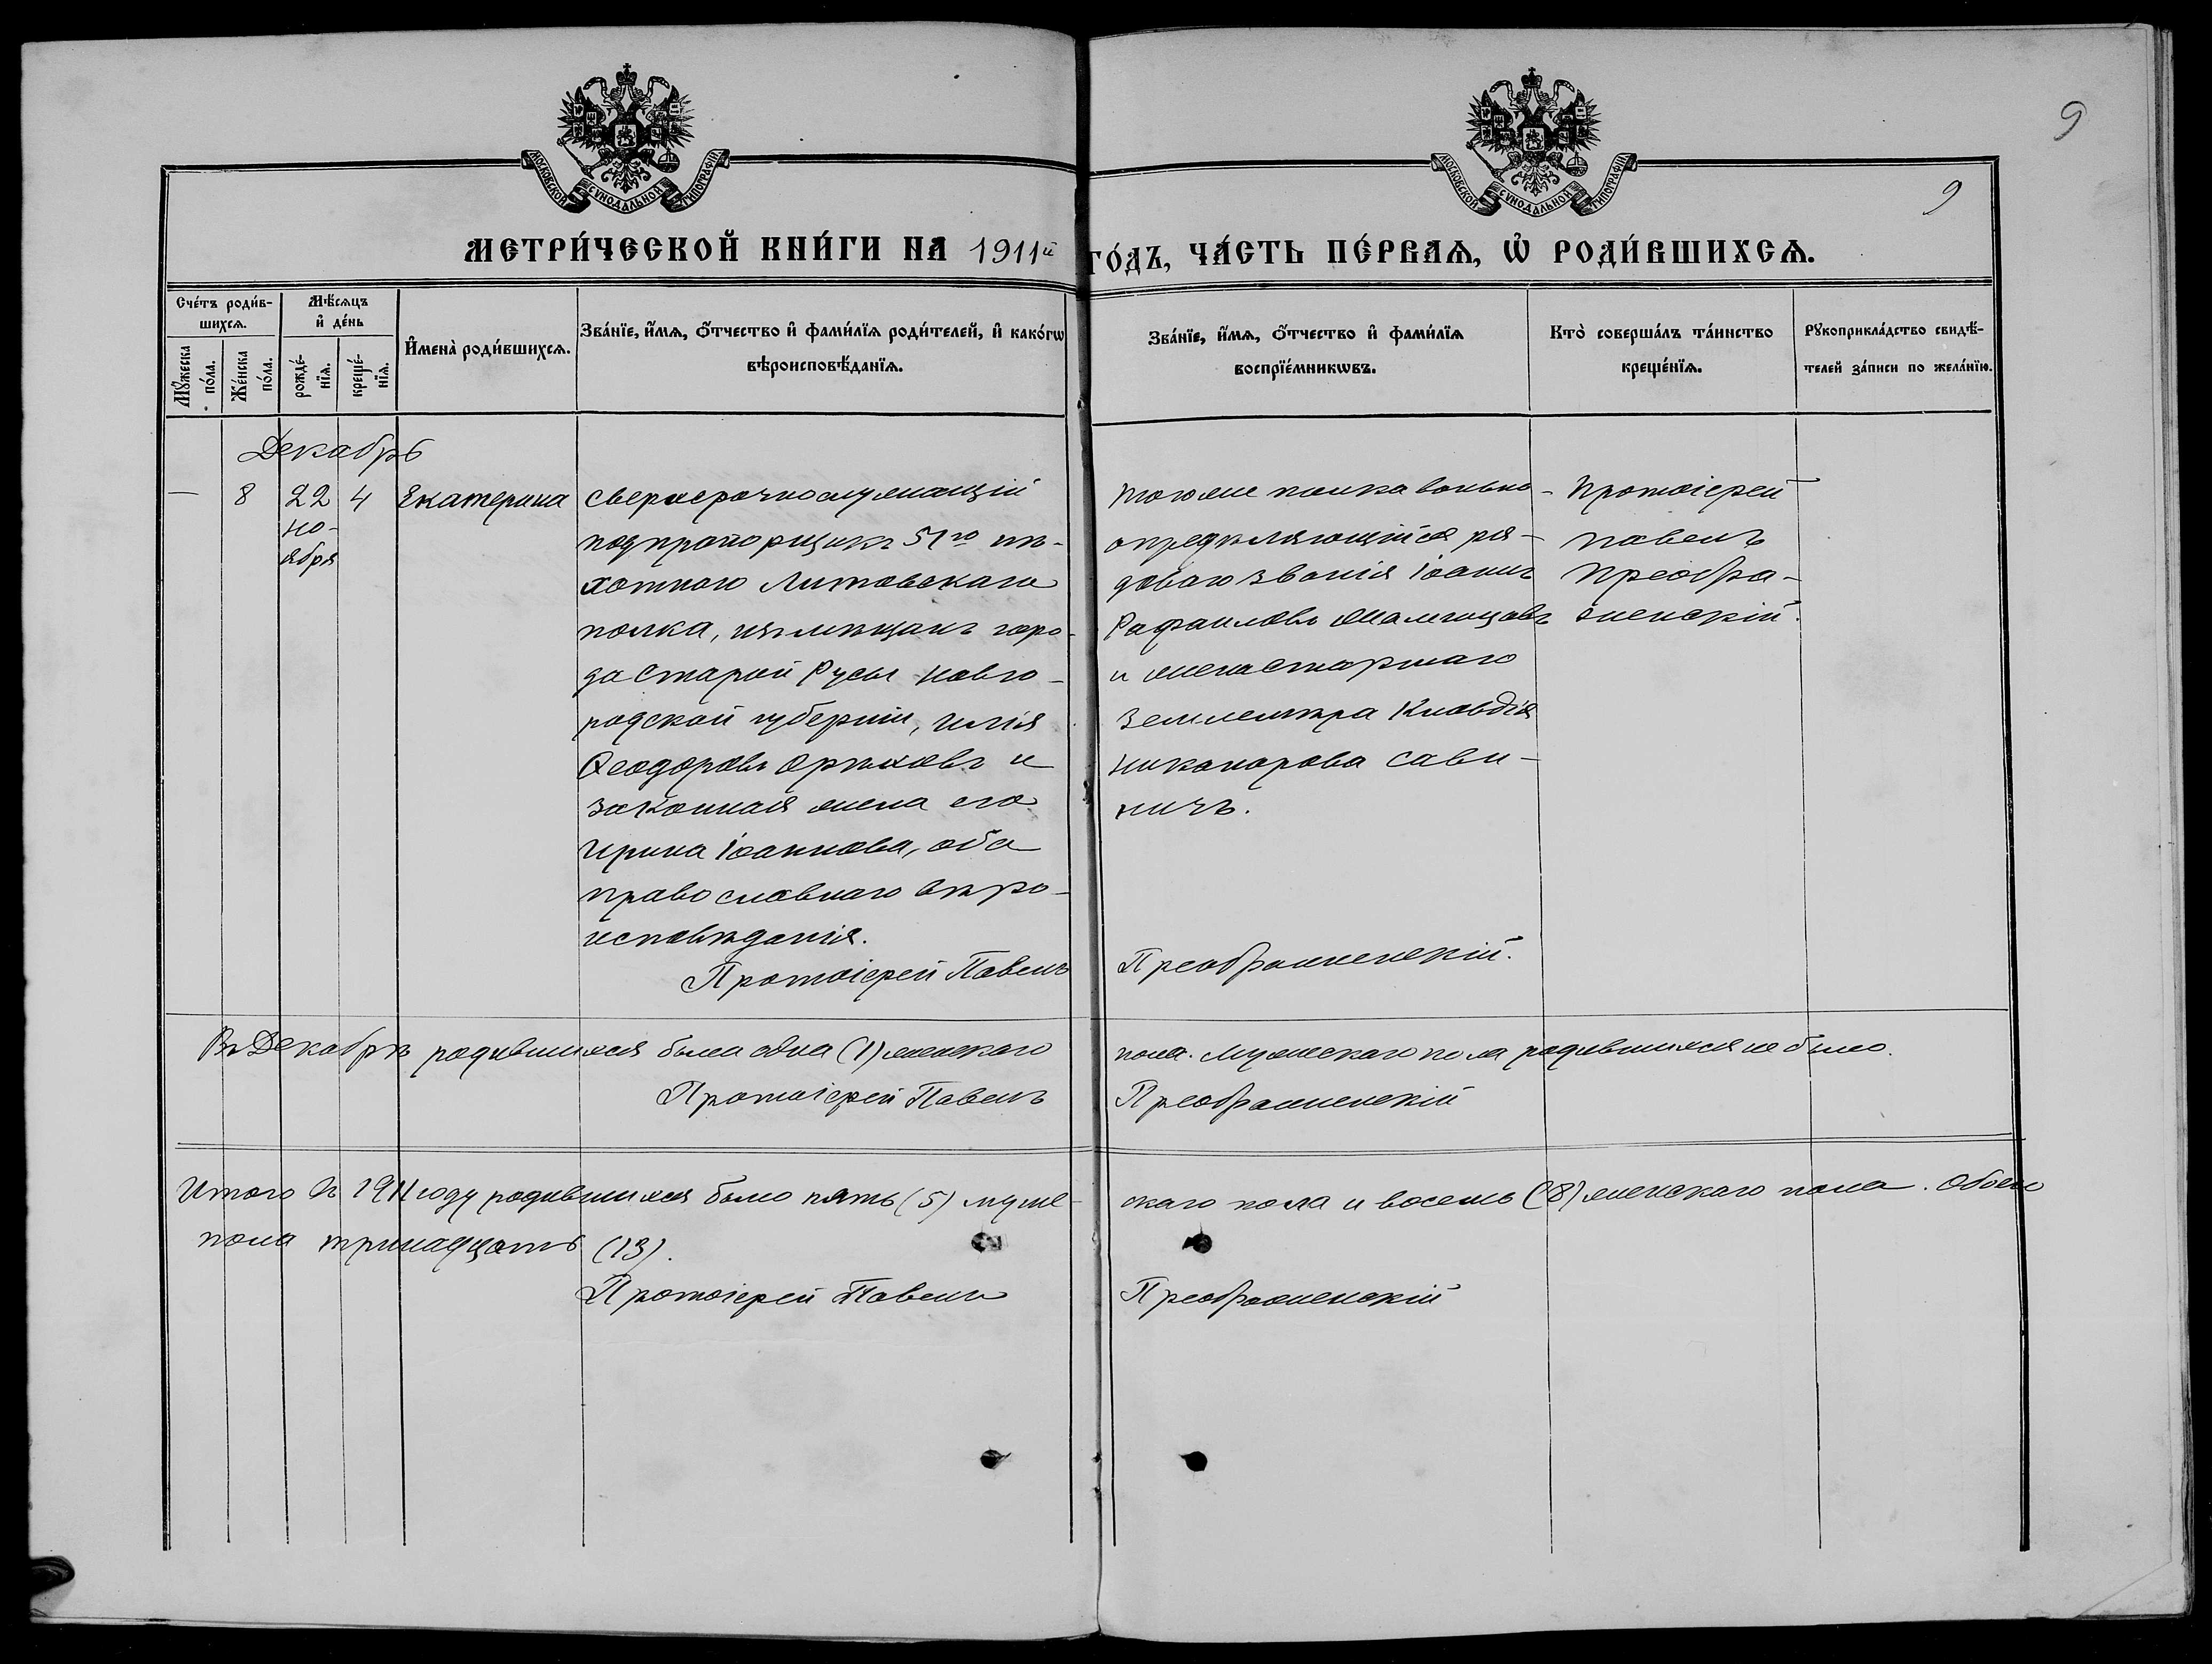 9
9
МОСКОВСКОЙ СУНОДАЛЬНОЙ ТИПОГРАФІИ
МОСКОВСКОЙ СУНОДАЛЬНОЙ ТИПОГРАФІИ
МЕТРИ́ЧЕСКОЙ КНИ́ГИ НА 1911й ГО́ДЪ, ЧА́СТЬ ПЕ́РВАѦ, Ѡ҆ РОДИ́ВШИХСѦ.
Сче́тъ роди́в-
шихсѧ.
Мꙋ́жеска
по́ла.
Же́нска
по́ла.
Мѣ́сѧцъ
и҆ де́нь
рожде́-
нїѧ.
креще́-
нїѧ.
И҆мена̀ роди́вшихсѧ.
Зва́нїе, и҆́мѧ, ѻ҆́тчество и҆ фами́лїѧ роди́телей, и҆ како́гѡ
вѣроисповѣ́данїѧ.
Зва́нїе, и҆́мѧ, ѻ҆́тчество и҆ фами́лїѧ
воспрїе́мникѡвъ.
Кто̀ соверша́лъ та́инство
креще́нїѧ.
Рꙋкоприкла́дство свидѣ́-
телей за́писи по жела́нїю.
Декабрь
— 8 22 4 Екатерина
но-
ября
сверхсрочнослужащій
подпрапорщикъ 51го пѣ-
хотнаго Литовскаго
полка, изъ мѣщанъ горо-
да Старой Русы Новго-
родской губерніи, Илія
Ѳеодоровъ Орѣховъ и
законная жена его
Ирина Іоаннова, оба
православнаго вѣро-
исповѣданія.
Протоіерей Павелъ Преображенскій.
того же полка вольно-
опредѣляющійся ря-
доваго званія Іоаннъ
Рафаиловъ
и жена старшаго
землемѣра Клавдія
Никанорова Сави-
ничъ.
Протоіерей
Павелъ
Преобра-
женскій.
Въ Декабрѣ родившихся была одна (1) женскаго пола. Мужескаго пола родившихся не было.
Протоіерей Павелъ Преображенскій
Итого въ 1911 году родившихся было пять (5) муже-скаго пола и восемь (8) женскаго пола. Обоего
пола тринадцать (13).
Протоіерей Павелъ Преображенскій